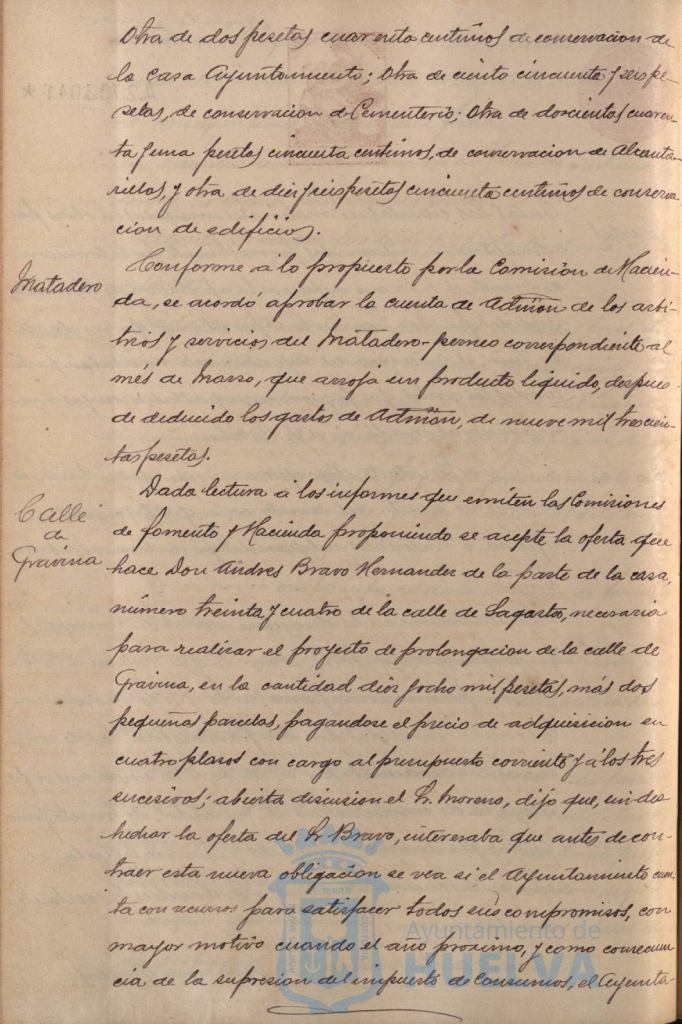 Otra de dos pesetas cuarenta centimos de conservacion de
la casa Ayuntamiento; Otra de ciento cincuenta y seis pe-
setas, de conservacion de Cementerio; Otra de doscientas cuaren
ta y una pesetas cincuenta centimos, de conservacion de Alcanta-
rillas, y otra de diez y seis pesetas cincuenta centimos de conserva
cion de edificios.
Matadero
Conforme á lo propuesto por la Comision de Hacien-
da, se acordó aprobar la cuenta de Admñon de los arbi-
trios y servicios del Matadero-perneo correspondiente al
més de Marzo, que arroja un producto liquido, despues
de deducido los gastos de Admñon, de nueve mil trescien-
tas pesetas.
Calle
de
Gravina
Dada lectura á los informes que emiten las Comisiones
de fomento y Hacienda proponiendo se acepte la oferta que
hace Don Andres Bravo Hernandez de la parte de la casa,
número treinta y cuatro de la calle de Sagasta, necesaria
para realizar el proyecto de prolongacion de la calle de
Gravina, en la cantidad diez y ocho mil pesetas, más dos
pequeñas parcelas, pagandose el precio de adquisicion en
cuatro plasos con cargo al presupuesto corriente y á los tres
sucesivos; abierta discusion el Sr. Moreno, dijo que, sin des
hechar la oferta del Sr Bravo, interesaba que antes de con-
traer esta nueva obligacion se vea si el Ayuntamiento cuen
ta con recursos para satisfacer todos sus compromisos, con
mayor motivo cuando el año proximo, y como consecuen
cia de la supresion del impuesto de Consumos, el Ayunta-
Ayuntamiento de
HUELVA